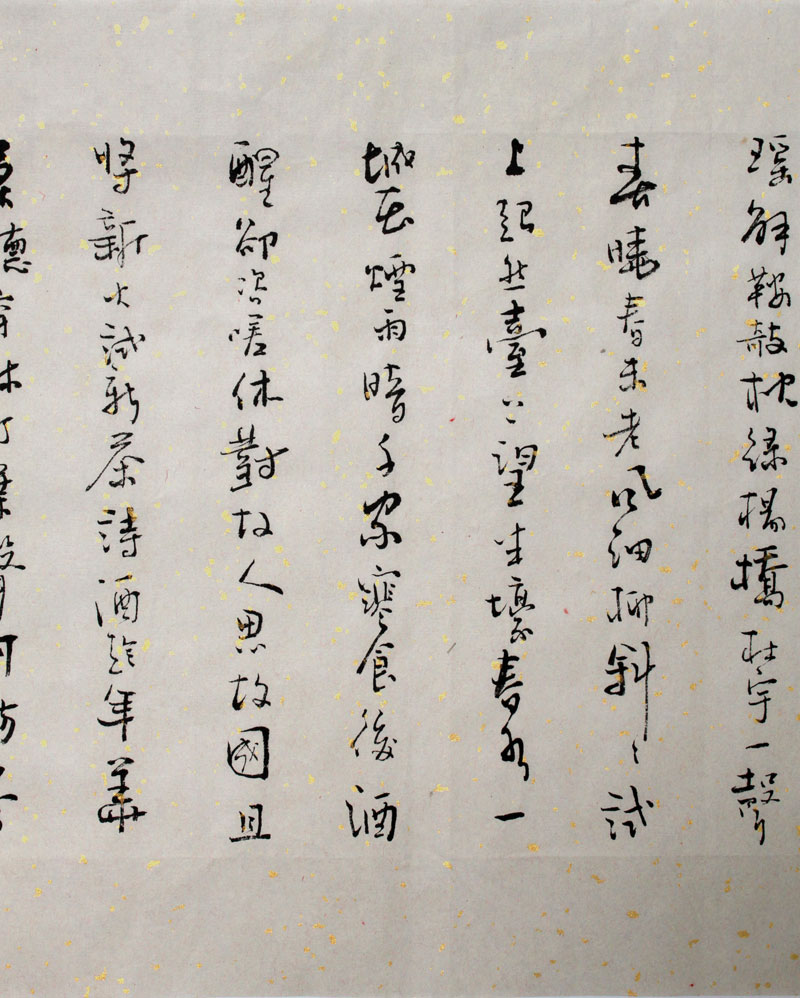 瑶解鞍敧枕綠楊橋杜宇一聲
春曉春未老風細柳斜〻試
上超然臺上望半壕春水一
城花煙雨暗千家寒食後酒
醒卻咨嗟休對故人思故國且
將新火試新茶詩酒趁年華